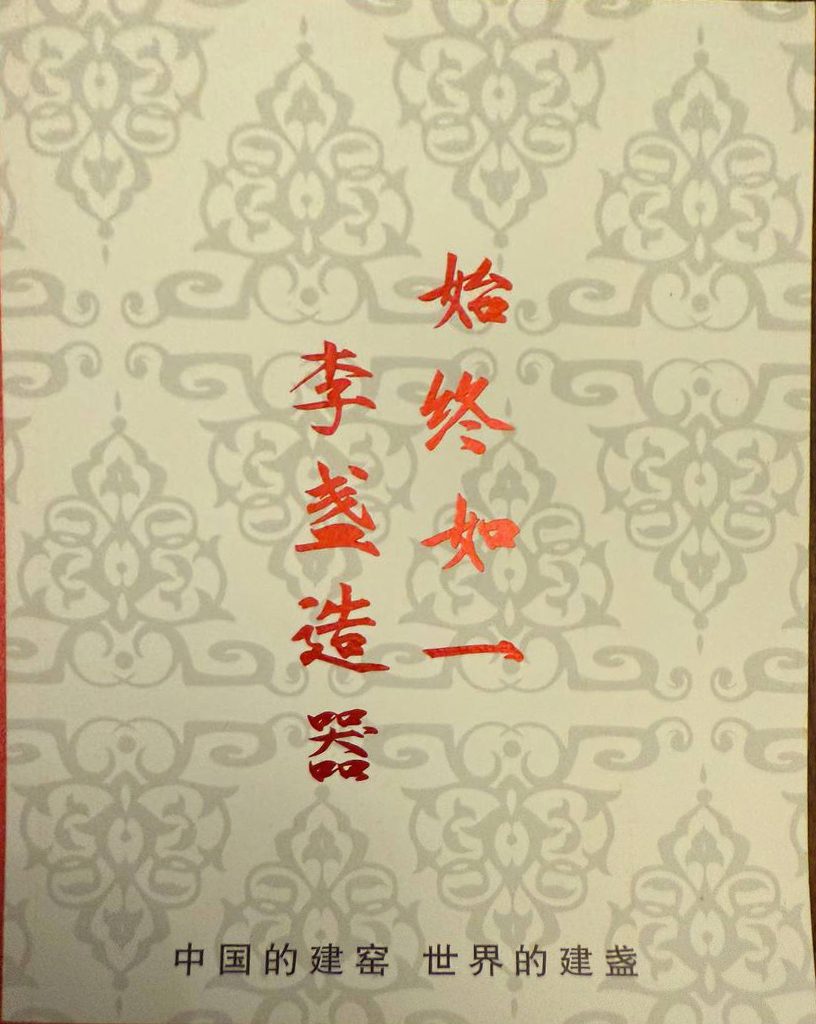 始终如一
李盏造器
中国的建窑 世界的建盏